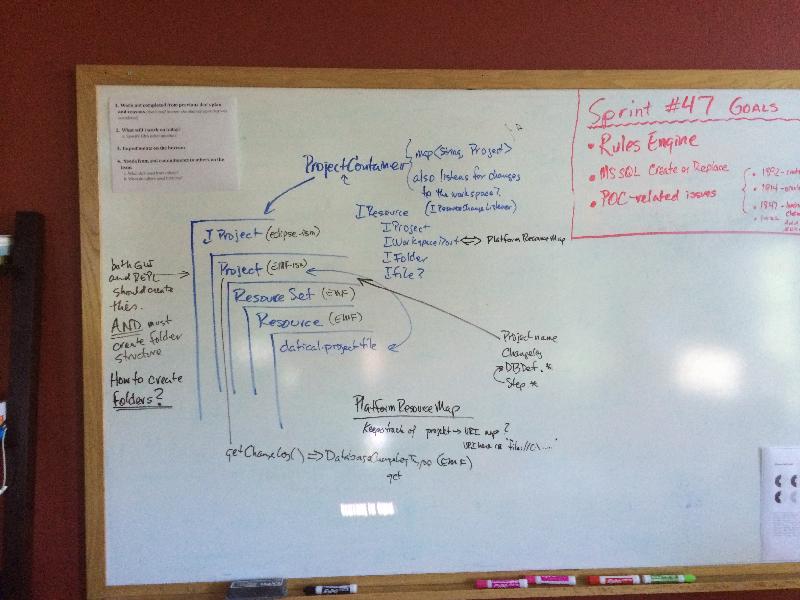 1. Work not completed from previous day's plan
and reasons
2. What will I work on today?
3. Impediments on the horizon
4. Needs from and commitments to others on the
team
ProjectContainer
map<String, Project>
also listens for changes
to the workspace?
(IResourceChangeListener)
Sprint #47 GOALS
• Rules Engine
• MS SQL Create or Replace
• POC-related issues
IResource
IProject
IWorkspaceRoot <=> PlatformResourceMap
IFolder
IFile?
IProject (eclipse-ism)
Project (EMF-ism)
Resource Set (EMF)
Resource (EMF)
datical.project file
both GUI
and REPL
should create
this.
AND must
create folder
structure
How to create
folders?
Project name
Changelog
DBDef. *
Step *
PlatformResourceMap
Keeps track of project → URI map ?
"file://C\....."
getChangeLog() => DatabaseChangeLogType (EMF)
get